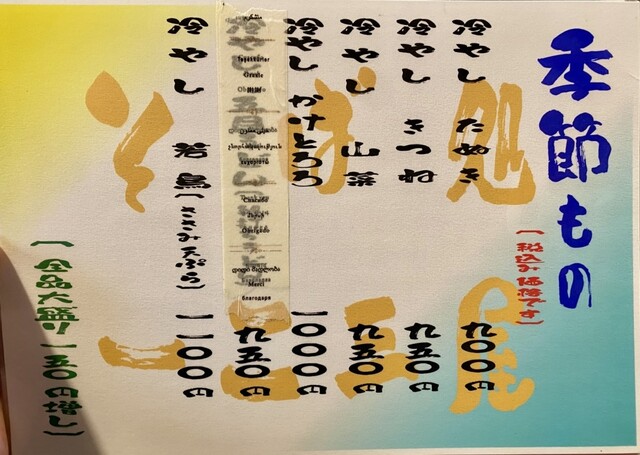 季節もの
[税込み価格です]
冷やし たぬき 九〇〇円
冷やし きつね 九五〇円
冷やし 山菜 九五〇円
冷やし かけとろろ 一〇〇〇円
冷やし 九五〇円
冷やし 若鳥[ささみ天ぷら] 一一〇〇円
[全品大盛り一五〇円増し]
そば処
Obrigado
დიდი მადლობა
Merci
благодаря